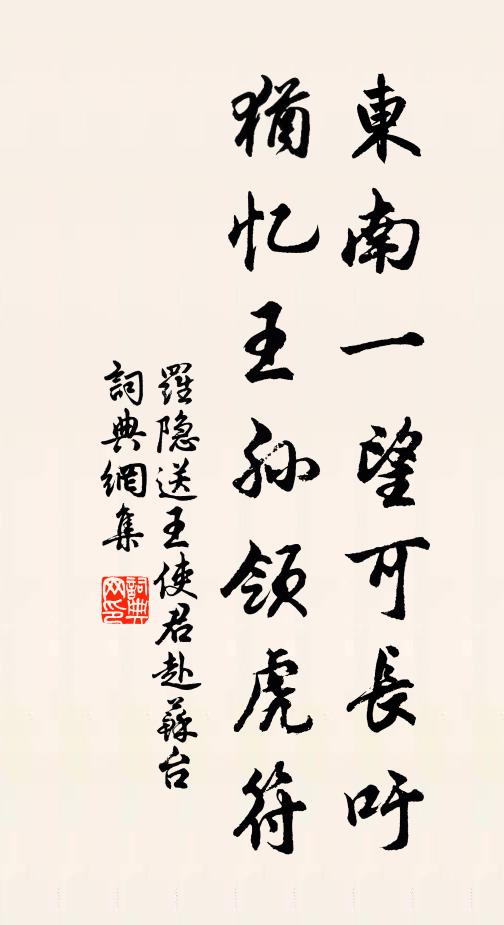 東南一望可長吁
猶忆王孙領虎符
羅隐送王使君赴蘇台
詞典網集
詞典网印